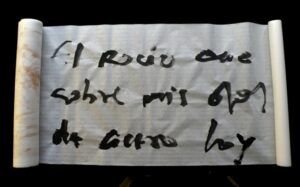 El rocío que
sobre mis
de acero hoy